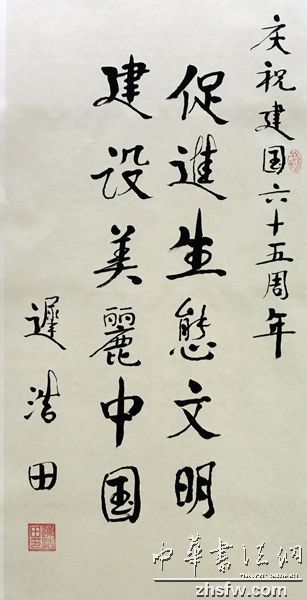 庆祝建国六十五周年
促進生態文明
建设美麗中国
遲浩田
中華書法網
zhsfw.com